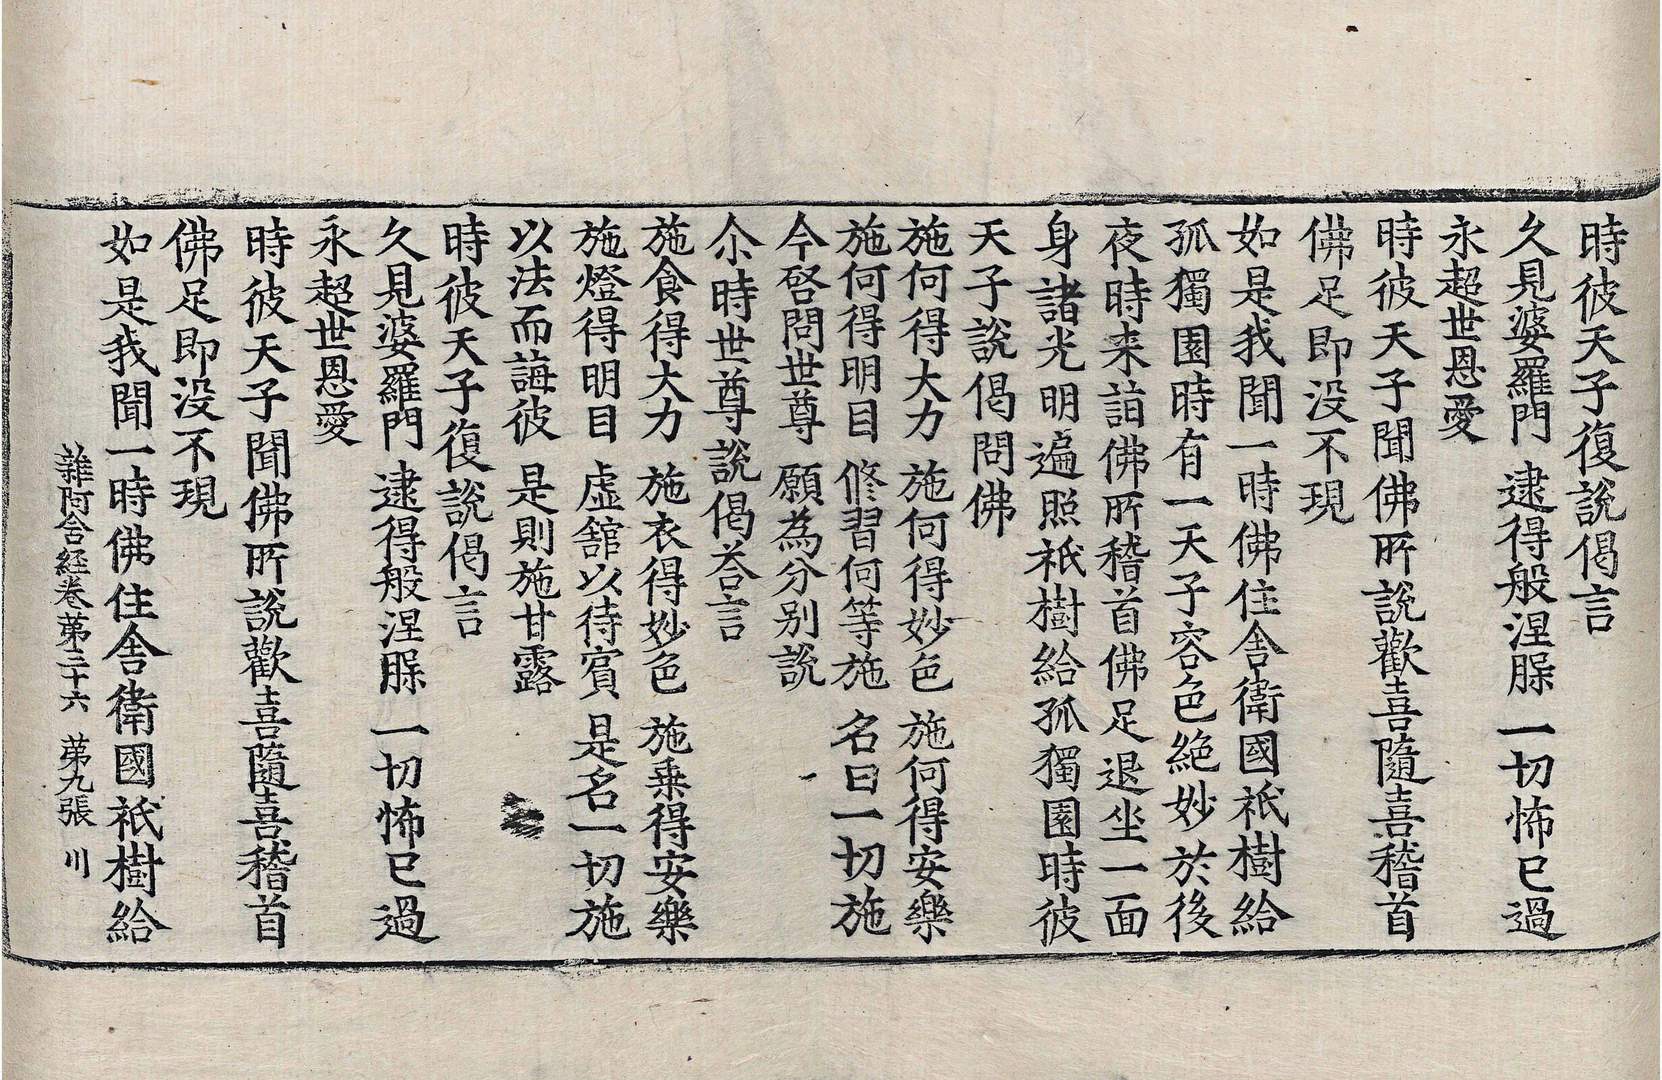 時彼天子復說偈言
久見婆羅門 逮得般涅槃 一切怖已過
永超世恩愛
時彼天子聞佛所說歡喜隨喜稽首
佛足即没不現
如是我聞一時佛住舎衛國祇樹給
孤獨園時有一天子容色絶妙於後
夜時来詣佛所稽首佛足退坐一面
身諸光明遍照祇樹給孤獨園時彼
天子說偈問佛
施何得大力 施何得妙色 施何得安樂
施何得明目 修習何等施 名曰一切施
今啓問世尊 願為分别說
尒時世尊說偈荅言
施食得大力 施衣得妙色 施乗得安樂
施燈得明目 虛舘以待賔 是名一切施
以法而誨彼 是則施甘露
時彼天子復說偈言
久見婆羅門 逮得般涅槃 一切怖已過
永超世恩愛
時彼天子聞佛所說歡喜隨喜稽首
佛足即没不現
如是我聞一時佛住舎衛國祇樹給
雜阿含経卷第三十六 第九張 川